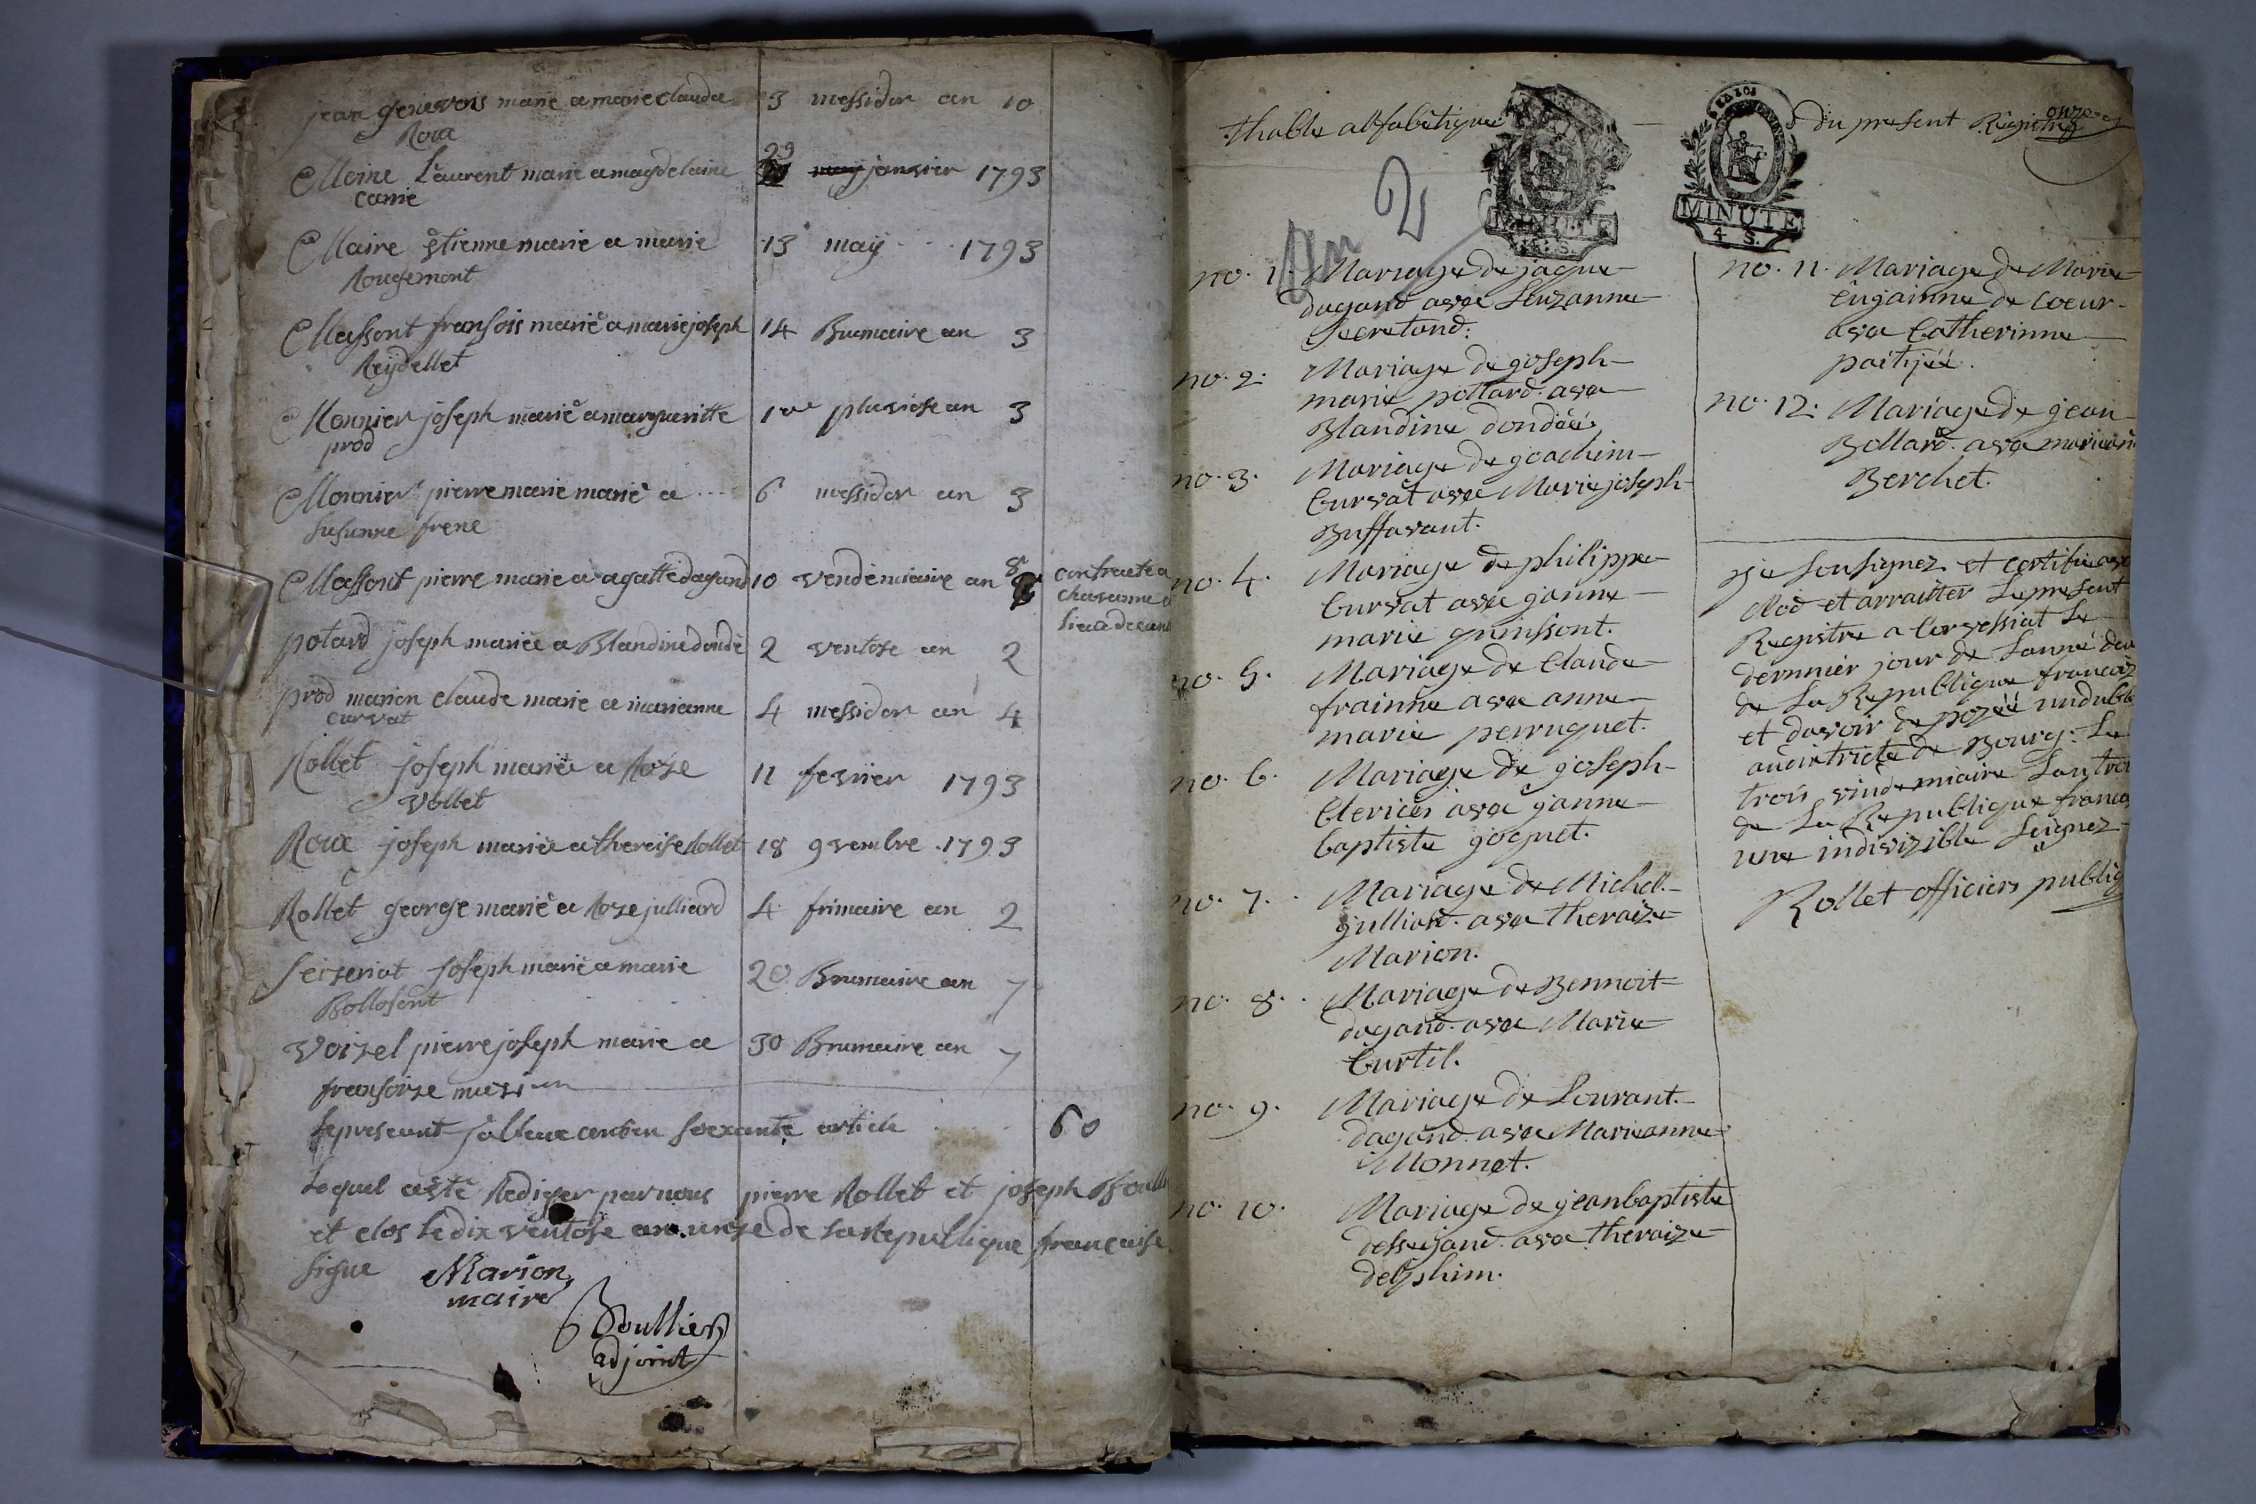 jean genevois marié a marie clauda 3 messidor an 10
Roux
Moine Laurent marié a magdelaine 29 janvier 1793
carrié
Maire Étienne marié a marie 13 may 1793
Rougemont
Massont fransois marié a marie joseph 14 Brumaire an 3
Reÿdellet
Monnier joseph marié a margueritte 1er pluviose an 3
prod
Monnier pierre marie marié a 6 messidor an 3
susanne frene
Massont pierre marié a agatte dagand 10 vendémiaire an 8 contracté a
potard joseph mariéé a Blandine dondé 2 ventose an 2
prod marion claude marié a marianne 4 messidor an 4
curvat
Rollet joseph mariéé a Roze 11 fevrier 1793
vollet
Roux joseph mariéé a thereise dollet 18 9vembre 1793
Rollet george marié a Roze julliard 4 frimaire an 2
seizeriat joseph marié a marie 20 Brumaire an 7
Bollosent
voizel pierre joseph marié a 30 Brumaire an 7
fransoize
article 60
Lequel a esté Rediger par nous pierre Rollet et joseph
et clos le dix ventose an unze de la Republique française
signé Marion
maire
Boullier
adjoint
thable alfabétique du present Registre
onze
an 2
MINUTE
4 S.
MINUTE
4 S.
no. 1. Mariage de jaque
dagand avec Suzanne
secretand.
no. 2. Mariage de goseph
marie pottard avec
Blandine dondéé.
no. 3. Mariage de goachim
Curvat avec Marie joseph
Buffavant.
no. 4. Mariage de philippe
Curvat avec ganne
marie guinssont.
no. 5. Mariage de Claude
frainne avec anne
marie perruquet.
no. 6. Mariage de goseph
Clerice avec ganne
baptiste goguet.
no. 7. Mariage de Michel
gulliard avec theraize
Marion.
no. 8. Mariage de Bennoit
dagand avec Marie
Curtil.
no. 9. Mariage de Lourant
dagand avec Marieanne
Monnet.
no. 10. Mariage de jeanbaptiste
dessejand avec theraize
delphim.
no. 11. Mariage de Marie
Eugainne de Coeur
avec Catherinne
no. 12. Mariage de jean
Bollard avec
Berchet.
je sousignez et certifie
clos et arraitter Le present
Registre a Corvessiat Le
dernnier jour de Lanné
de La Republique
et davoir de pozéé
au de Bourg. Le
trois vindemiaire Lan
de La Republique
une indivizible Seignez
Rollet officiers